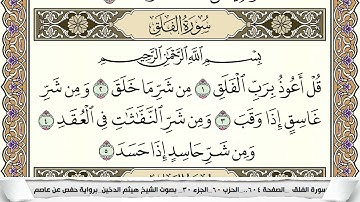 سُورَةُ الْفَلَقِ
بِسْمِ اللَّهِ الرَّحْمَٰنِ الرَّحِيمِ
قُلْ أَعُوذُ بِرَبِّ الْفَلَقِ ١ مِن شَرِّ مَا خَلَقَ ٢ وَمِن شَرِّ
غَاسِقٍ إِذَا وَقَبَ ٣ وَمِن شَرِّ النَّفَّاثَاتِ فِي الْعُقَدِ ٤
وَمِن شَرِّ حَاسِدٍ إِذَا حَسَدَ ٥
سورة الفلق _الصفحة ٦٠٤.. الحزب ٦٠_الجزء ٣٠_ بصوت الشيخ هيثم الدخين_برواية حفص عن عاصم